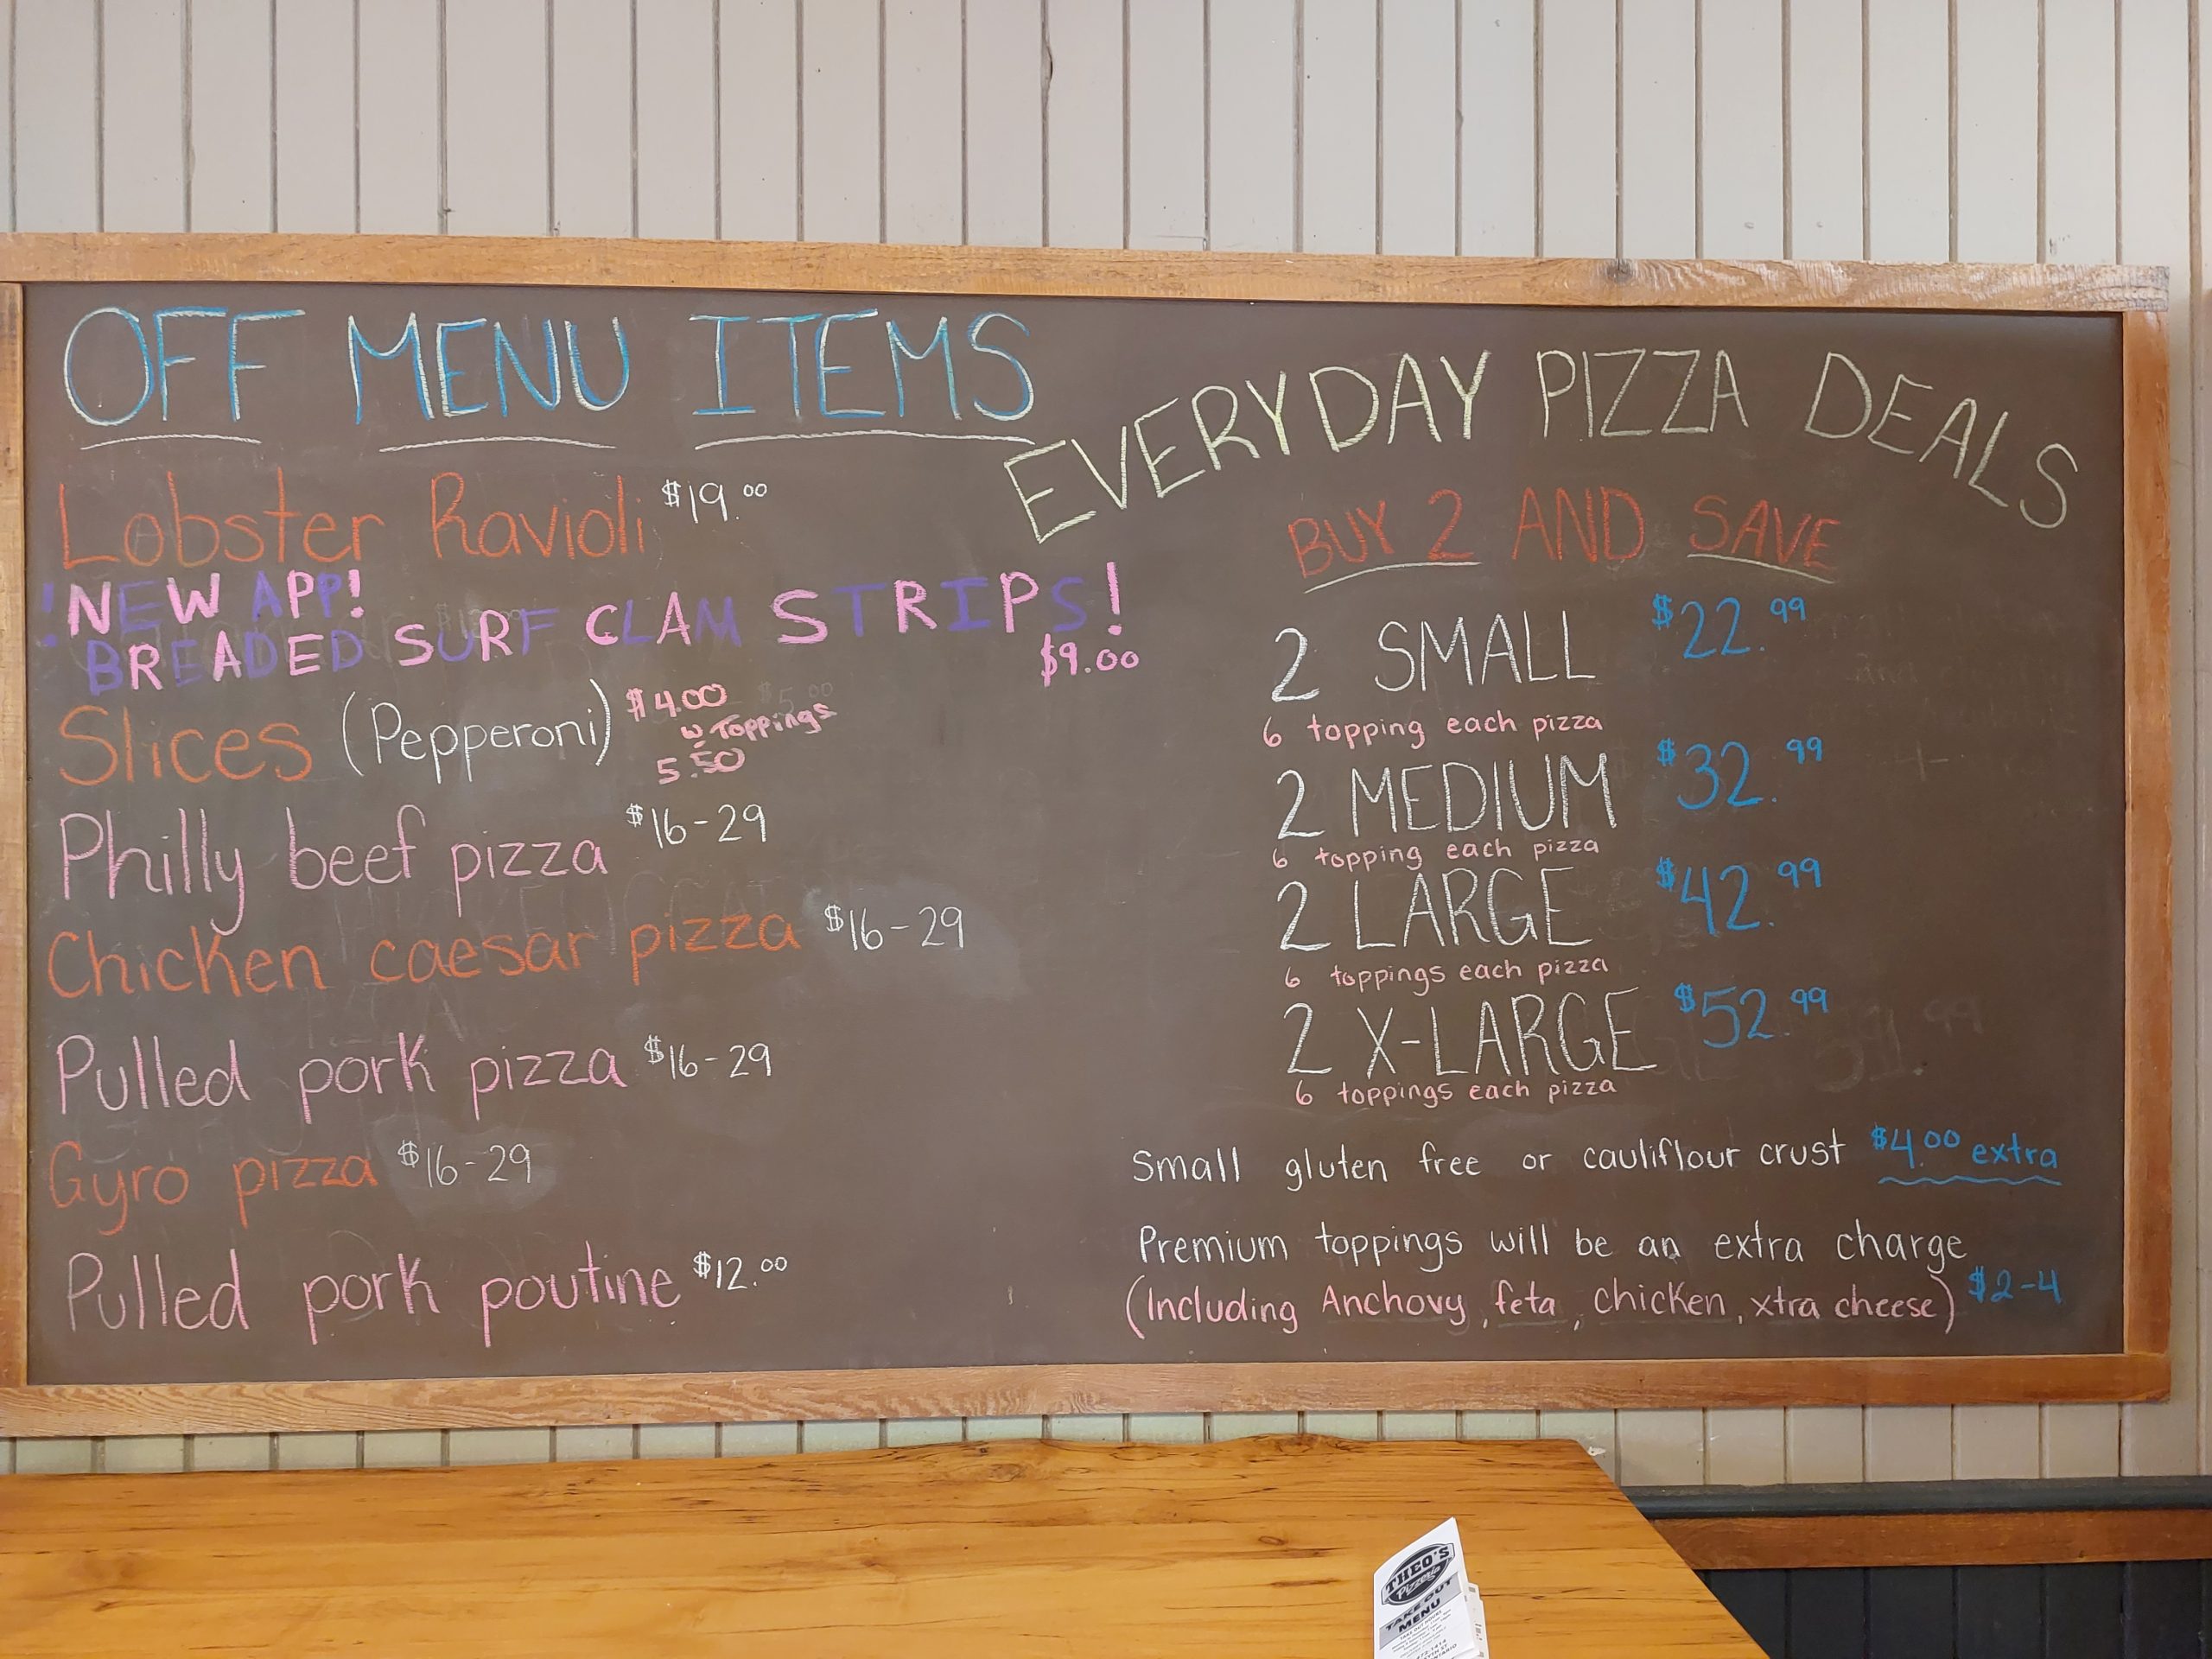 OFF MENU ITEMS
Lobster Ravioli $19.00
!NEW APP!
BREADED SURF CLAM STRIPS!
$9.00
Slices (Pepperoni) $4.00
w. Toppings
5.50
Philly beef pizza $16-29
Chicken caesar pizza $16-29
Pulled pork pizza $16-29
Gyro pizza $16-29
Pulled pork poutine $12.00
EVERYDAY PIZZA DEALS
BUY 2 AND SAVE
2 SMALL $22.99
6 topping each pizza
2 MEDIUM $32.99
6 topping each pizza
2 LARGE $42.99
6 toppings each pizza
2 X-LARGE $52.99
6 toppings each pizza
Small gluten free or cauliflour crust $4.00 extra
Premium toppings will be an extra charge
(Including Anchovy, feta, chicken, xtra cheese) $2-4
THEO'S
Pizzeria
TAKE OUT
MENU